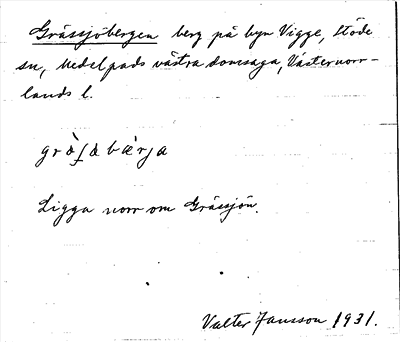 Grässjöbergen berg på byn Vigge, Stöde
sn, Medelpads västra domsaga, Västernorr-
lands l.
Ligga norr om Grässjön.
Valter Jansson 1931.